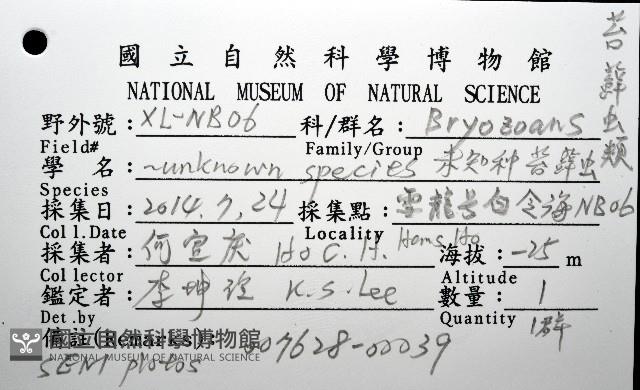 國立自然科學博物館
NATIONAL MUSEUM OF NATURAL SCIENCE
苔蘚虫類
野外號:XL-NB06 科/群名:Bryozoans
Field# Family/Group
學名:~unknown species 未知种苔蘚虫
Species
採集日:2014.7.24 採集點:雪龍号白令海NB06
Coll.Date Locality
採集者:何宣庆 Ho C.H. Hans Ho 海拔:-25 m
Collector Altitude
鑑定者:李坤瑄 K.S.Lee 數量:1
Det.by Quantity 1群
備註(Remarks): 007628-00039
國立自然科學博物館
NATIONAL MUSEUM OF NATURAL SCIENCE
SEM photos